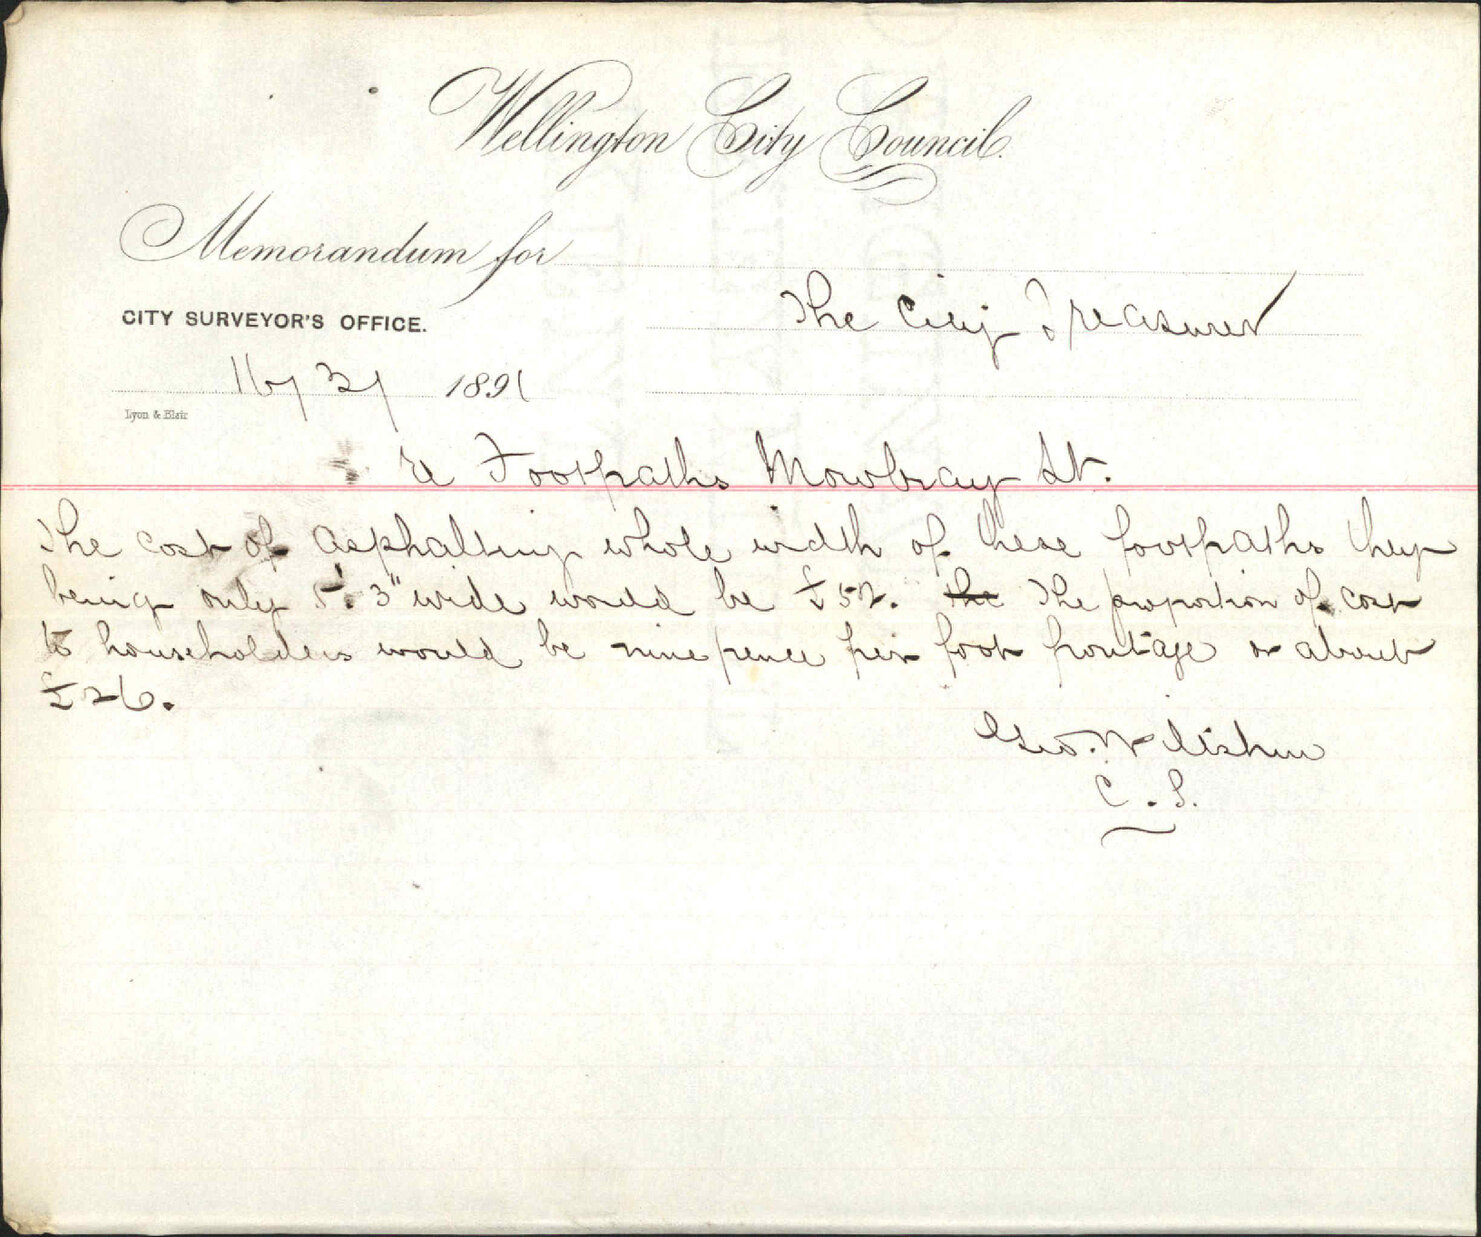 Wellington City Council.
Memorandum for
The City Treasurer
CITY SURVEYOR'S OFFICE.
16/3/ 1891
Lyon & Blair
re Footpaths Mowbray St.
The cost of asphalting whole width of these footpaths they
being only 5'.3" wide would be £52. the The proportion of cost
to householders would be ninepence per foot frontage or about
£26.
Geo.
C.S.